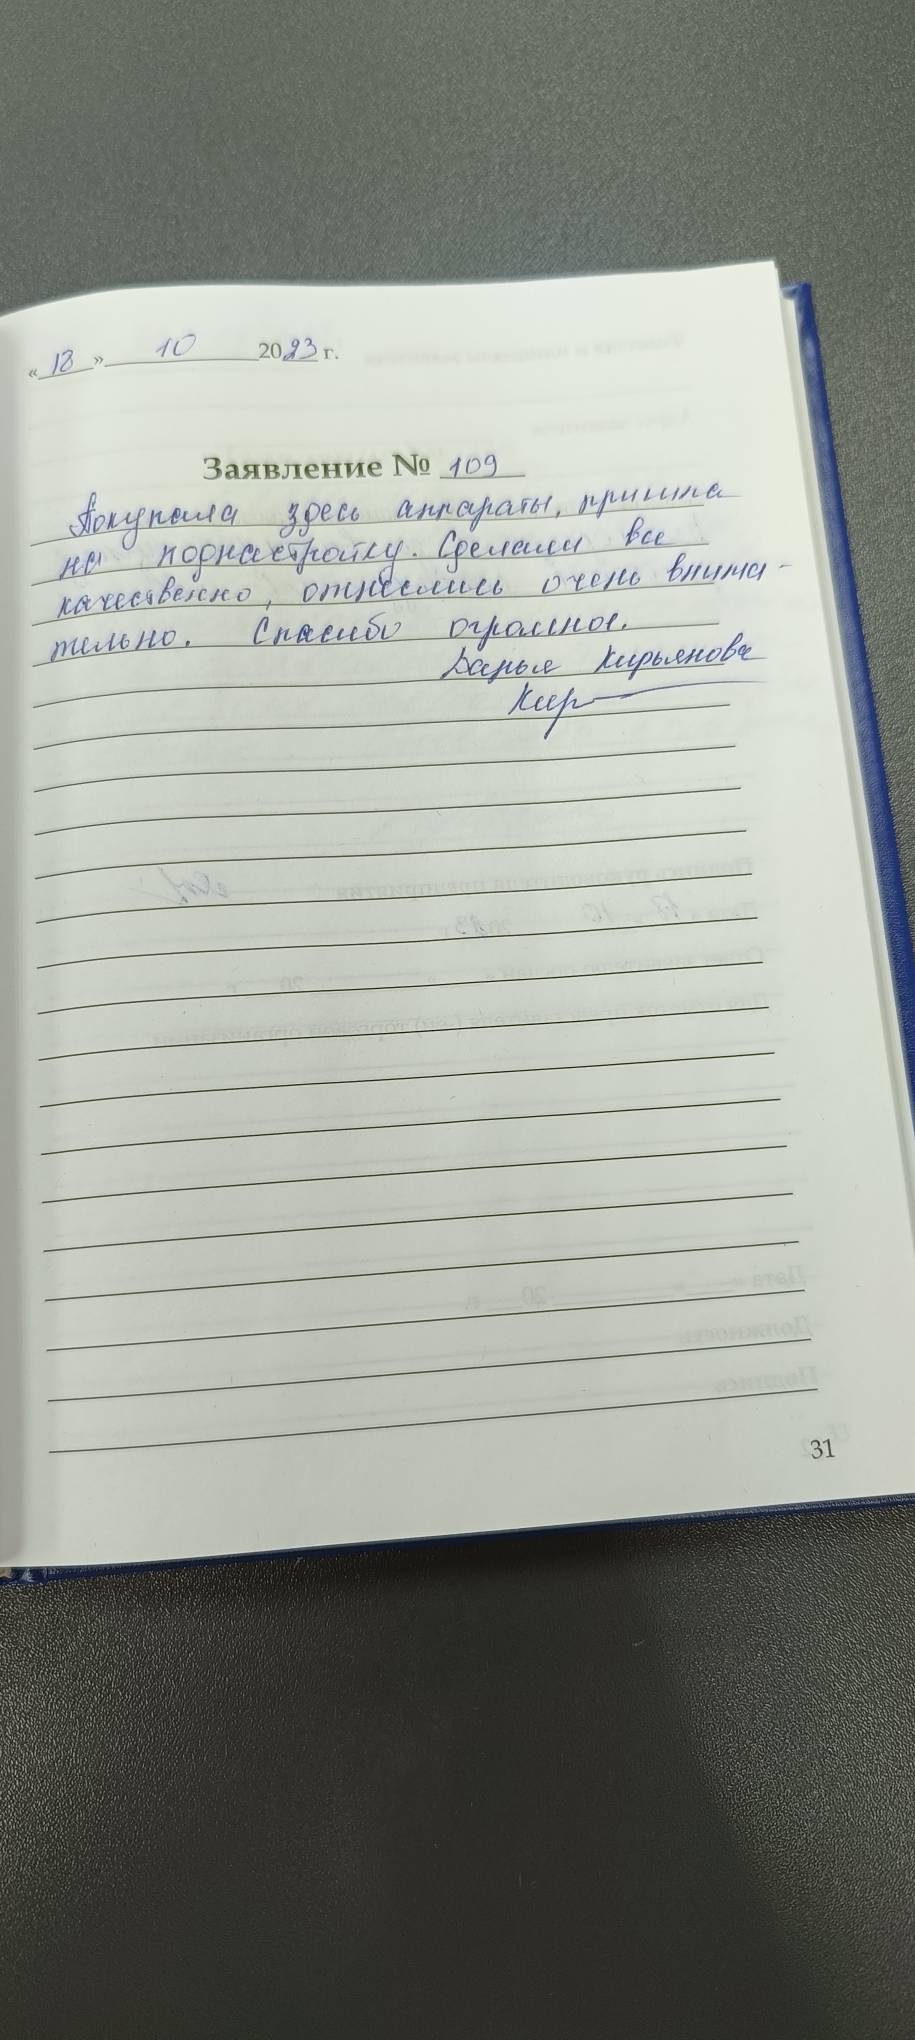 «18» 10 2023 г.
Заявление № 109
Покупала здесь аппараты, пришла
на поднастройку. Сделали все
качественно, отнеслись очень внима-
тельно. Спасибо огромное.
Дарья Кирьянова
Кир
31